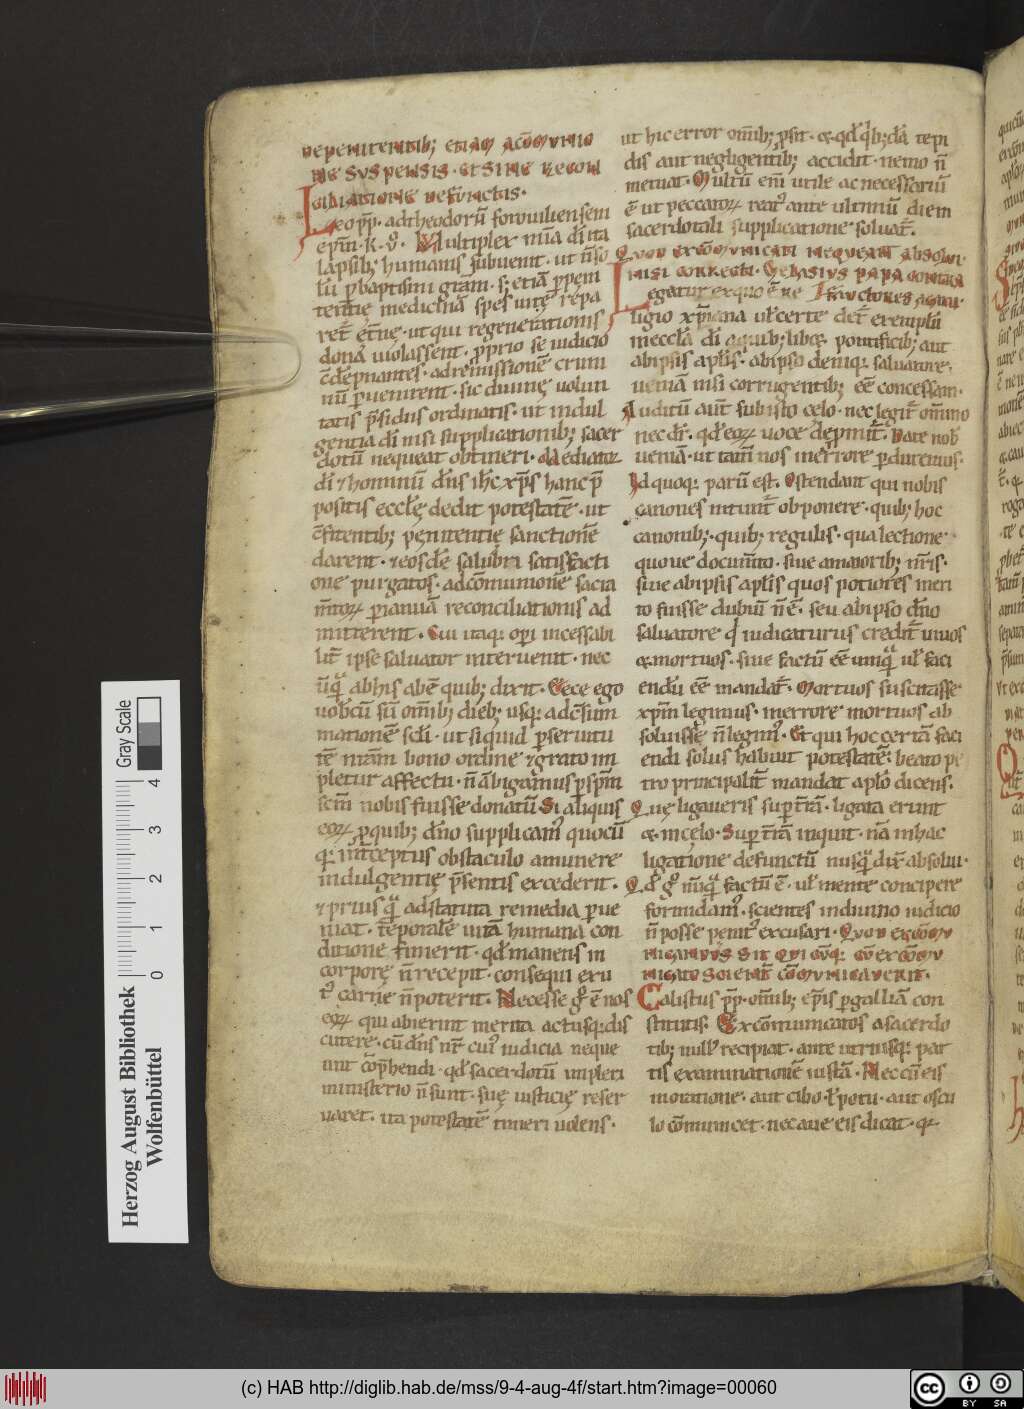 De penitentib; etiam a cōmunio
ne suspensis. et sine recon
ciliatione defunctis.
Leo pp̄. ad theodorū foroiuliensem
ep̄m. k. v̊. Multiplex mīa dī ita
lapsib; humanis subuenit. ut n̄ so
lū p baptismi grām. s; etiā p peni
tentię medicinā spes uitę repa
ret̄ et̄nę. ut qui regenerationis
dona uiolassent. pprio se iudicio
c̄dēpnantes. ad remissionē crimi
nū puenirent. sic diuinę uolun
tatis p̄sidiis ordinatis. ut indul
gentia dī nisi supplicationib; sacer
dotū nequeat obtineri. Mediator
dī ⁊ hominū dn̄s ih̄c xp̄s hanc p̄
positis eccłę dedit potestatē. ut
c̄fitentib; penitentię sanctionē
darent. ⁊ eosdē salubri satisfacti
one purgatos. ad cōmunionē sacra
m̄toꝝ p ianuā reconciliationis ad
mitterent. Cui utaq: opi incessabi
lit̄ ipse saluator interuenit. nec
ūq̄ abhis abē quib; dixit. Ecce ego
uobcū sū om̄ib; dieb; usq: ad c̄sum
mationē scłi. ut si quid p seruitu
tē nr̄am bono ordine ⁊ grato im
pletur affectu. n̄ ābigam' p sp̄m
scm̄ nobis fuisse donatū. Si aliquis
eoꝝ p quib; dn̄o supplicam' quocū
q: int̄ceptus obstaculo a munere
indulgentię p̄sentis excederit.
⁊ prius q̄ ad statuta remedia pue
niat. tēporalē uitā humana con
ditione finierit. qd̄ manens in
corpore n̄ recepit. consequi exu
t' carne n̄ poterit. Necesse g° ē nos
eoꝝ qui abierint merita actusq: dis
cutere. cū dn̄s nr̄ cui' iudicia neque
unt cōp̄hendi. qd̄ sacerdotū impleri
ministerio n̄ sunt. suę iusticię reser
uaret. ita potestatē timeri uolens.
ut hic error om̄ib; psit. ⁊ qd̄ q'b;dā tepi
dis aut negligentib; accidit. nemo n̄
metuat. Multū enī utile ac necessariū
ē ut peccatoꝝ reat' ante ultimū diem
sacerdotali supplicatione soluat̄.
Quod excōmunicati nequeant absolui
nisi correcti. Gelasius papa
Legatur ex quo ē
ligio xp̄iana uł certe det̄ exemplū
in eccła dī a quib; libꝫ pontificib; aut
ab ipsis apłis. ab ipso deniq: saluatore.
ueniā nisi corrigentib; eē concessam.
Auditū aut̄ sub isto celo. nec legit̄ omīno
nec dr̄. qd̄ eoꝝ uoce depmit̄. Date nob'
ueniā. ut tam̄ nos in errore pduremus.
Id quoq: parū est. Ostendant qui nobis
canones nitunt̄ obponere. quib; hoc
canonib;. quib; regulis. qua lectione
quoue documto. siue a maiorib; nr̄is.
siue ab ipsis apłis quos potiores meri
to fuisse dubiū n̄ ē. seu ab ipso dn̄o
saluatore q' iudicaturus credit̄ uiuos
⁊ mortuos. siue factū eē umq̄ uł faci
endū eē mandat̄. Mortuos suscitasse
xp̄m legimus. in errore mortuos ab
soluisse n̄ legim'. Et qui hoc certā faci
endi solus habuit potestatē: beato pe
tro principalit̄ mandat apło dicens.
Quę ligaueris sup t̄rā. ligata erunt
⁊ in cęlo. Sup t̄rā inquit. nā in hac
ligatione defunctū nusq̄ dix̄ absolui.
Qd̄ g° nūq̄ factū ē. uł mente concipere
formidam'. scientes in diuino iudicio
n̄ posse penit' excusari. Quod excōmu
nicandus sit qui cūq: cū excōmu
nicato scient̄ cōmunicauerit.
Calistus pp̄. om̄ib; ep̄is p galliā con
stitutis. Excōmunicatos a sacerdo
tib; null' recipiat. ante utriusq: par
tis examinationē iustā. Nec cū eis
in oratione. aut cibo ł potu. aut oscu
lo cōmunicet. nec aue eis dicat. qꝫ
Gray Scale
4
3
2
1
0
Herzog August Bibliothek
Wolfenbüttel
(c) HAB http://diglib.hab.de/mss/9-4-aug-4f/start.htm?image=00060
cc BY SA